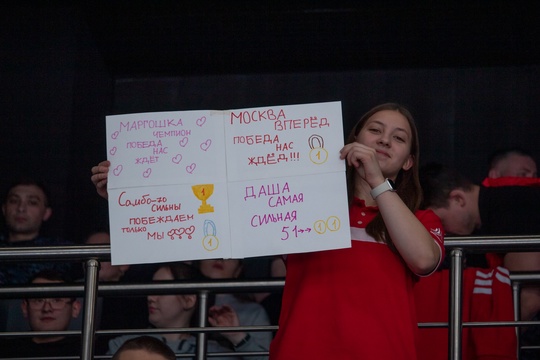 МАРГОШКА
ЧЕМПИОН
ПОБЕДА
НАС
ЖДЁТ
МОСКВА
ВПЕРЁД
ПОБЕДА
НАС
ЖДЁД!!!
1
Самбо-70
СИЛЬНЫ
ПОБЕЖДАЕМ
ТОЛЬКО
МЫ
1
1
ДАША
САМАЯ
СИЛЬНАЯ
51→→
1 1